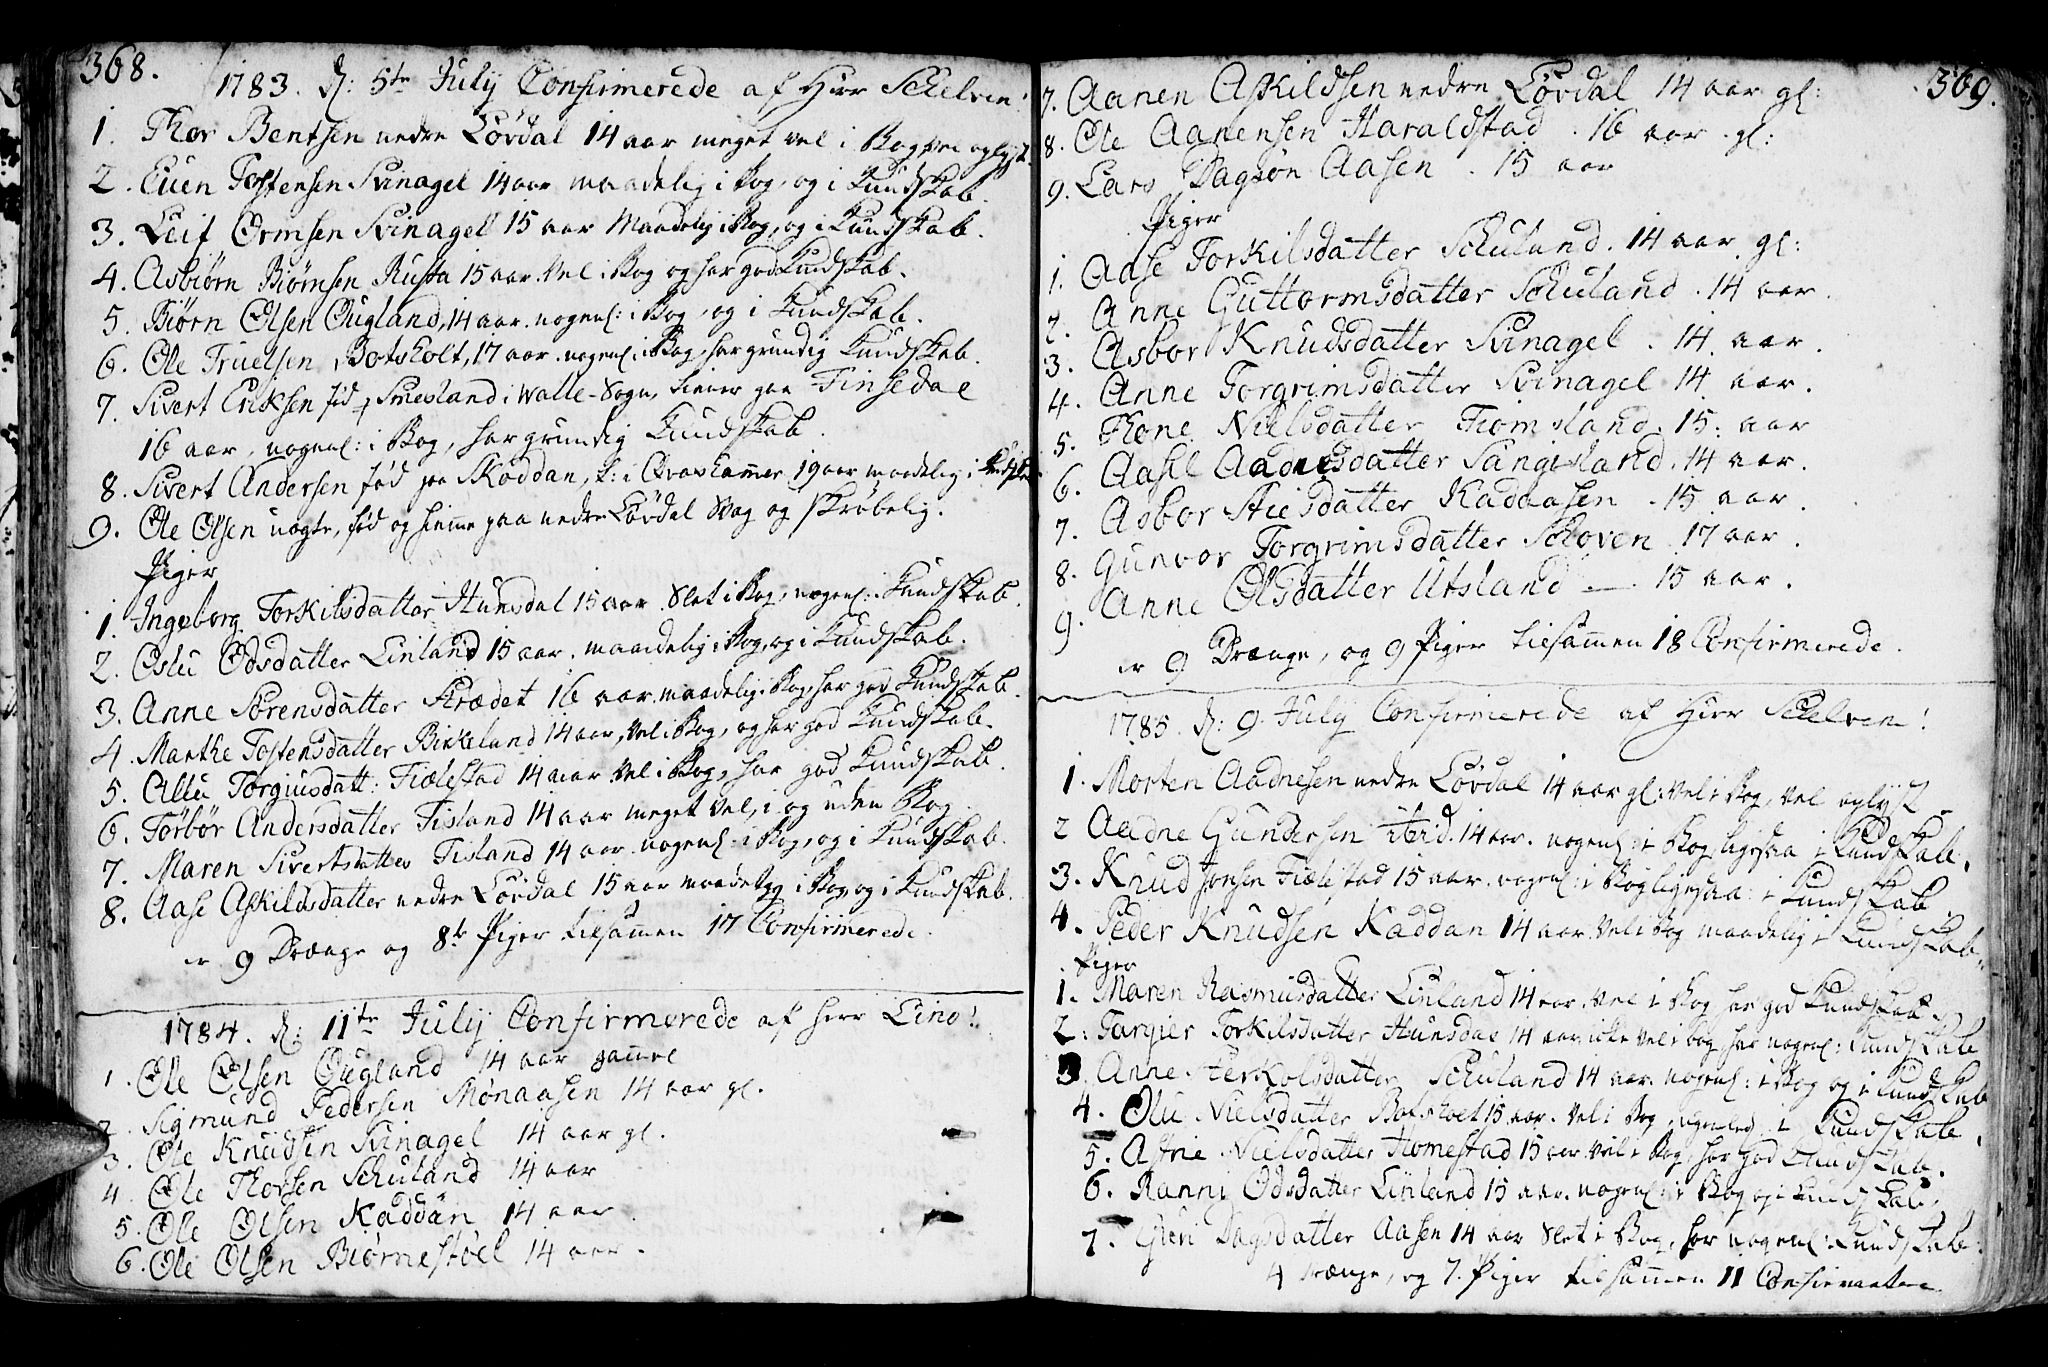 368.
1783. D: 5te July Confirmerede af Herr Schelven!
1. Thor Bentsen nedre Løvdal 14 aar meget vel i Bog, vel oplyst
2. Euen Tostensen Svinagel 14 aar maadelig i Bog, og i Kundskab.
3. Leif Ormsen Svinagel 15 aar Maadelig i Bog, og i Kundskab.
4. Asbiørn Biørnsen Rusta 15 aar. Vel i Bog og har god Kundskab.
5. Biørn Olsen Øugland, 14 aar. nogenl: i Bog, og i Kundskab.
6. Ole Truelsen Botsholt, 17 aar. nogenl. i Bog, har grundig Kundskab.
7. Sivert Eriksen fød Smesland i Walle-Sogn, tiener paa Finsedal
16 aar, nogenl: i Bog, har grundig Kundskab.
8. Sivert Andersen fød paa Skoddan, i Øvas 19 aar maadelig i
9. Ole Olsen uægte, fød og hiemme paa nedre Løvdal Svag og skrøbelig.
Piger
1. Ingeborg Torkilsdatter Hunsdal 15 aar. Slet i Bog, nogenl: i Kundskab.
2. Oslu Odsdatter Linland 15 aar. maadelig i Bog, og i Kundskab.
3. Anne Sørensdatter Strædet 16 aar. maadelig i Bog, har god Kundskab.
4. Marthe Tostensdatter Birkeland 14 aar, Vel i Bog, og har god Kundskab.
5. Allu Torgiusdatt: Fiælestad 14 aar Vel i Bog, har god Kundskab.
6. Torbør Andersdatter Tisland 14 aar meget Vel, i og uden Bog.
7. Maren Sivertsdatter Tisland 14 aar. nogenl: i Bog, og i Kundskab.
8. Aase Askildsdatter nedre Løvdal 15 aar maadelig i Bog, og i Kundskab.
er 9 Drænge og 8te Piger tilsammen 17 Confirmerede.
1784. D: 11te July Confirmerede af herr Lind!
1. Ole Olsen Øugland 14 aar gammel
2. Sigmund Pedersen Mønaasen 14 aar gl.
3. Ole Knudsen Svinagel 14 aar gl.
4. Ole Thorsen Schuland 14 aar
5. Ole Olsen Kaddan 14 aar
6. Ole Olsen Biørnestøel 14 aar.
369.
7. Aanen Askildsen nedre Løvdal 14 aar gl:
8. Ole Aanensen Haraldstad. 16 aar gl:
9. Lars Dagsøn Aasen. 15 aar
Piger
1. Aase Torkilsdatter Schuland. 14 aar gl:
2. Anne Guttormsdatter Schuland. 14 aar.
3. Asbor Knudsdatter Svinagel. 14. aar.
4. Anne Torgrimsdatter Svinagel 14 aar.
5. Thone Nielsdatter Tromsland. 15. aar
6. Aasel Aadnesdatter Sangesland. 14 aar.
7. Asbor Stiesdatter Kadaasen. 15 aar
8. Gunvor Torgrimsdatter Schoven. 17 aar.
9. Anne Olsdatter Utsland — 15 aar.
er 9 Drænge, og 9 Piger tilsammen 18 Confirmerede.
1785. D: 9. July Confirmerede af Herr Schelven!
1. Morten Aadnesen nedre Løvdal 14 aar gl: Vel i Bog, Vel oplyst
2 Aadne Gundersen ibid. 14 aar. nogenl: i Bog, ligesaa i Kundskab.
3. Knud Jonsen Fiælestad 15 aar. nogenl: i Bog ligesaa: i Kundskab
4. Peder Knudsen Kaddan 14 aar. Vel i Bog maadelig i Kundskab.
Piger
1. Maren Rasmusdatter Linland 14 aar. Vel i Bog har god Kundskab
2: Targier Torkilsdatter Hunsdal 14 aar, icke Vel i bog, har nogenl: Kundskab
3 Anne Terkolsdatter Schuland 14 aar. nogenl: i Bog og i Kundskab
4. Olu Nielsdatter Botsholt 15 aar. Vel i Bog, i Kundskab.
5. Astrie Nielsdatter Homestad 15 aar Vel i Bog, har god Kundskab.
6. Ranni Odsdatter Linland 15 aar. nogenl: i Bog og i Kundskab.
7. Giuri Dagsdatter Aasen 14 aar Slet i Bog, har nogenl: Kundskab:
4 Drænge, og 7. Piger tilsammen 11 Confirmanter